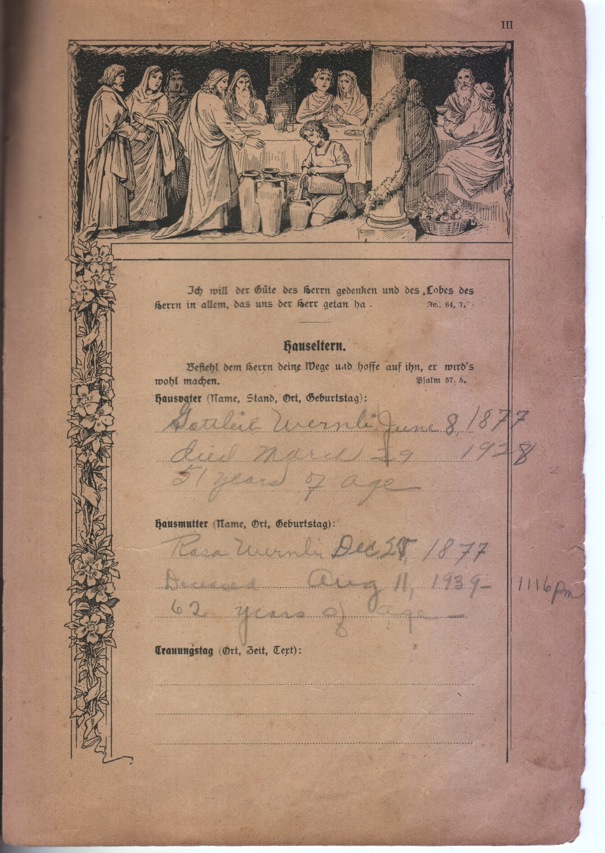 III
Ich will der Güte des Herrn gedenken und des Lobes des
Herrn in allem, das uns der Herr getan ha .
Jes. 64, 7.
Hauseltern.
Befiehl dem Herrn deine Wege und hoffe auf ihn, er wird's
wohl machen. Psalm 37. 5.
Hausvater (Name, Stand, Ort, Geburtstag):
Gottlieb Wernli June 8, 1877
died March 29 1928
51 years of age
Hausmutter (Name, Ort, Geburtstag):
Rosa Wernli Dec 25, 1877
Deceased Aug 11, 1939- 1116 pm
62 years of age -
Trauungstag (Ort, Zeit, Text):